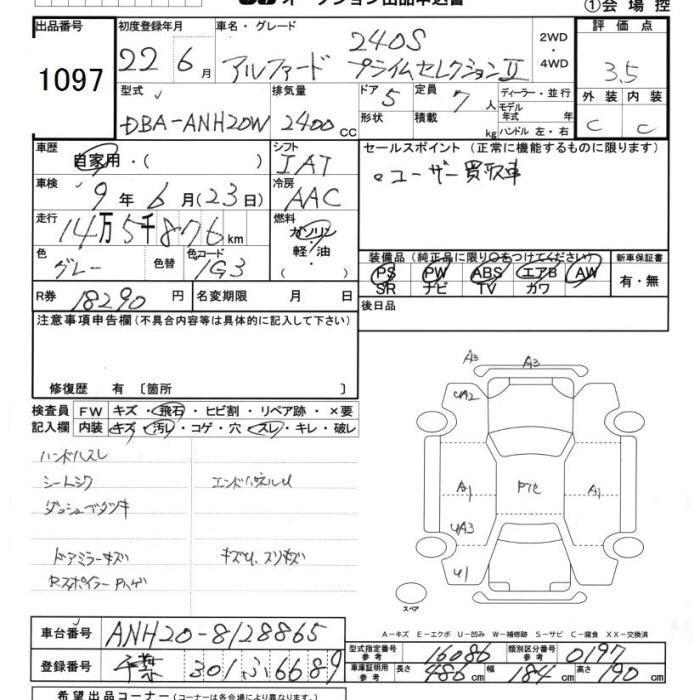 オークション出品申込書
①会場控
出品番号 初度登録年月 車名・グレード 2WD・4WD 評価点
1097 22 6月 アルファード 240S プライムセレクションⅡ 3.5
型式 排気量 ドア 5 定員 7人 ディーラー・並行 外装 内装
DBA-ANH20W 2400cc 形状 積載 kg モデル年式 年 ハンドル 左・右 C C
車歴 自家用・( ) シフト IAT セールスポイント (正常に機能するものに限ります)
車検 9年6月(23日) 冷房 AAC 。ユーザー買取車
走行 14万5千876km 燃料 ガソリン・軽・油
色 グレー 色替 色コード 1G3 装備品 (純正品に限り○をつけてください) 新車保証書
PS PW ABS エアB AW 有・無
SR ナビ TV カワ
R券 18290円 名変期限 月 日 後日品
注意事項申告欄 (不具合内容等は具体的に記入して下さい)
修復歴 有 〔箇所 〕
検査員記入欄 FW キズ・飛石・ヒビ割・リペア跡・×要
内装 キズ・汚レ・コゲ・穴・スレ・キレ・破レ
ハンドルスレ
シートシワ エンドパネルU
ダッシュベタツキ
ドアミラーキズ キズU、スリキズ
Rスポイラー Pハゲ
A3 A3
UA2
A1 P化 A1
UA3
U1
スペア
A-キズ E-エクボ U-凹み W-補修跡 S-サビ C-腐食 XX-交換済
車台番号 ANH20-8128865
登録番号 千葉 301 ふ 6689
型式指定番号 参考 16086 類別区分番号 参考 0197
車庫証明用 参考 長さ 486cm 幅 184cm 高さ 190cm
希望出品コーナー (コーナーは各会場により異なります。)